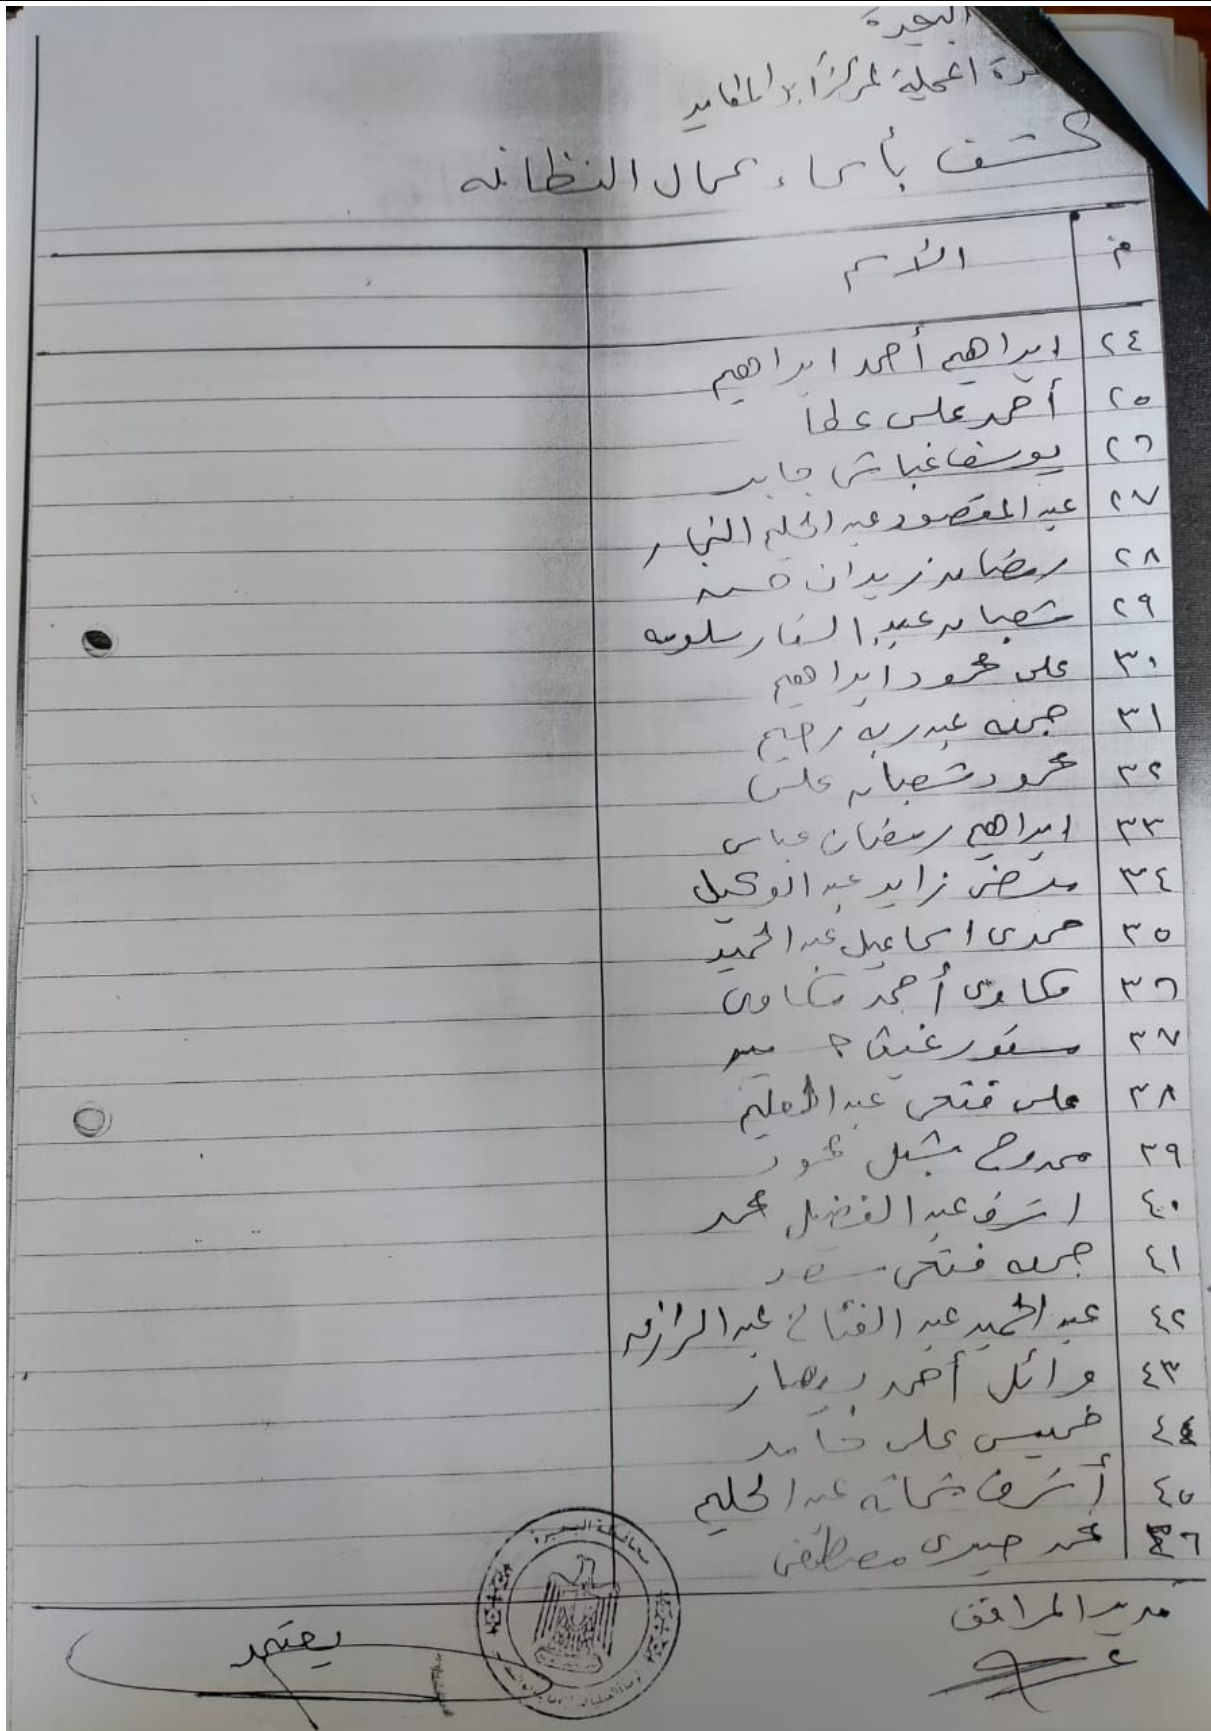 البحيرة
المحلية لمركز أبو المطامير
كشف بأسماء عمال النظافه
م الأسم
٢٤ ابراهيم أحمد ابراهيم
٢٥ أحمد على عطا
٢٦ يوسف غباشى جابر
٢٧ عبد المقصود عبد الحليم النجار
٢٨ رمضان زيدان حسن
٢٩ شعبان عبد الستار سلومه
٣٠ على محمود ابراهيم
٣١ جمعه عبدربه رحيم
٣٢ محمود شعبان على
٣٣ ابراهيم رمضان عباس
٣٤ زايد عبد الوكيل
٣٥ حمدى اسماعيل عبد الحميد
٣٦ مكاوى أحمد مكاوى
٣٧ مستور
٣٨ على فتحى عبد العليم
٣٩ ممدوح شبل محمود
٤٠ اشرف عبد الفضيل محمد
٤١ جمعه فتحى سعد
٤٢ عبد الحميد عبد الفتاح عبد الرازق
٤٣ وائل أحمد
٤٤ خميس على حامد
٤٥ أشرف شحاته عبد الحليم
٤٦ محمد صبرى مصطفى
مدير المرافق
يعتمد
محافظة البحيرة